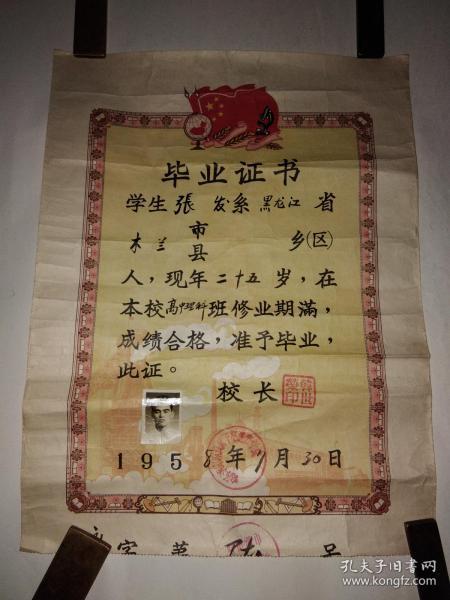 毕业证书
学生張 发系黑龙江省
木兰市县 乡(区)
人，现年二十五岁，在
本校高中理科班修业期滿，
成绩合格，准予毕业，
此证。
校长
1958年9月30日
字第 号
孔夫子旧书网
www.kongfz.com